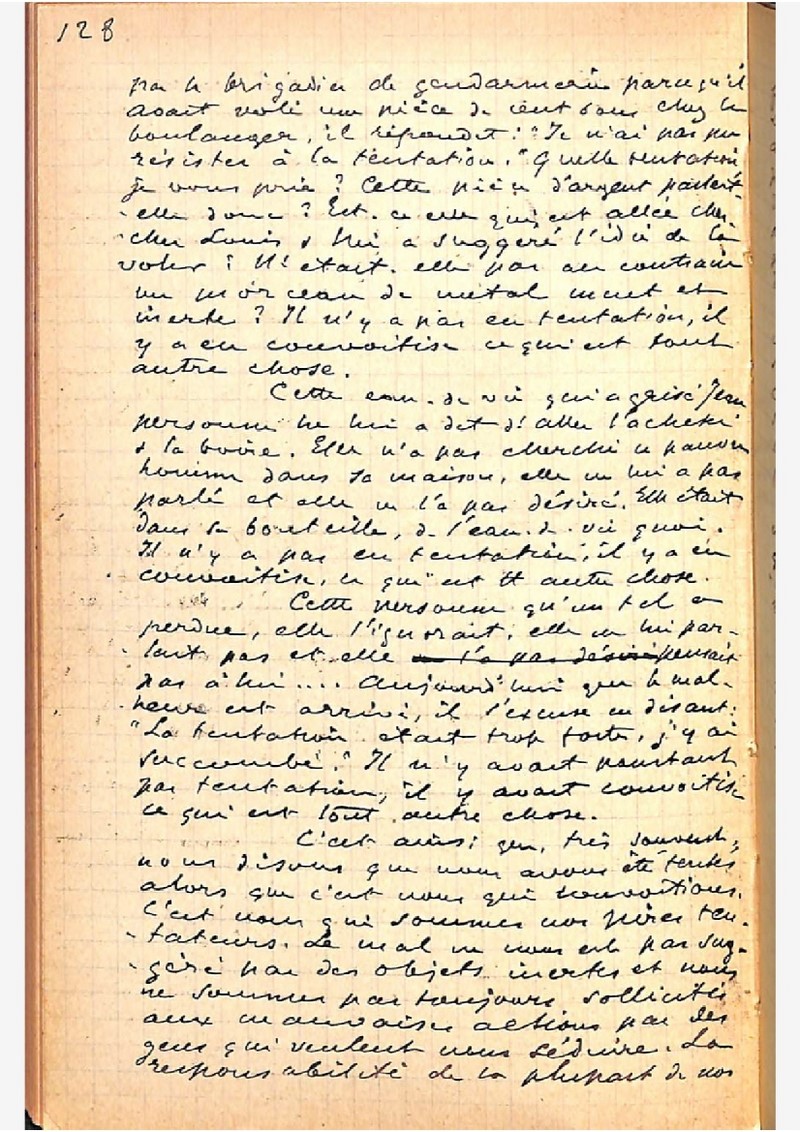 128
par le brigadier de gendarmerie parcequ'il
avait volé une pièce de cent sous chez le
boulanger, il répondit : "Je n'ai pas pu
résister à la tentation." Quelle tentation
je vous prie ? Cette pièce d'argent parlait-
elle donc ? Est-ce elle qui est allée cher-
cher Louis & lui a suggéré l'idée de la
voler ? N'était-elle pas au contraire
un morceau de métal muet et
inerte ? Il n'y a pas eu tentation, il
y a eu convoitise ce qui est tout
autre chose.
Cette eau-de-vie qui a grisé Jean
personne ne lui a dit d'aller l'acheter
& la boire. Elle n'a pas cherché ce pauvre
homme dans sa maison, elle ne lui a pas
parlé et elle ne l'a pas désiré. Elle était
dans sa bouteille, de l'eau-de-vie quoi.
Il n'y a pas eu tentation, il y a eu
convoitise, ce qui est tt autre chose.
Cette personne qu'un tel a
perdue, elle l'ignorait, elle ne lui par-
lait pas et elle ne l'a pas désiré pensait
pas à lui .... Aujourd'hui que le mal-
heur est arrivé, il s'excuse en disant:
"La tentation était trop forte, j'y ai
succombé." Il n'y avait pourtant
pas tentation, il y avait convoitise
ce qui est tout autre chose.
C'est ainsi que, très souvent,
nous disons que nous avons été tentés
alors que c'est nous qui convoitions.
C'est nous qui sommes nos pires ten-
tateurs. Le mal ne nous est pas sug-
géré par des objets inertes et nous
ne sommes pas toujours sollicités
aux mauvaises actions par des
gens qui veulent nous séduire. La
responsabilité de la plupart de nos